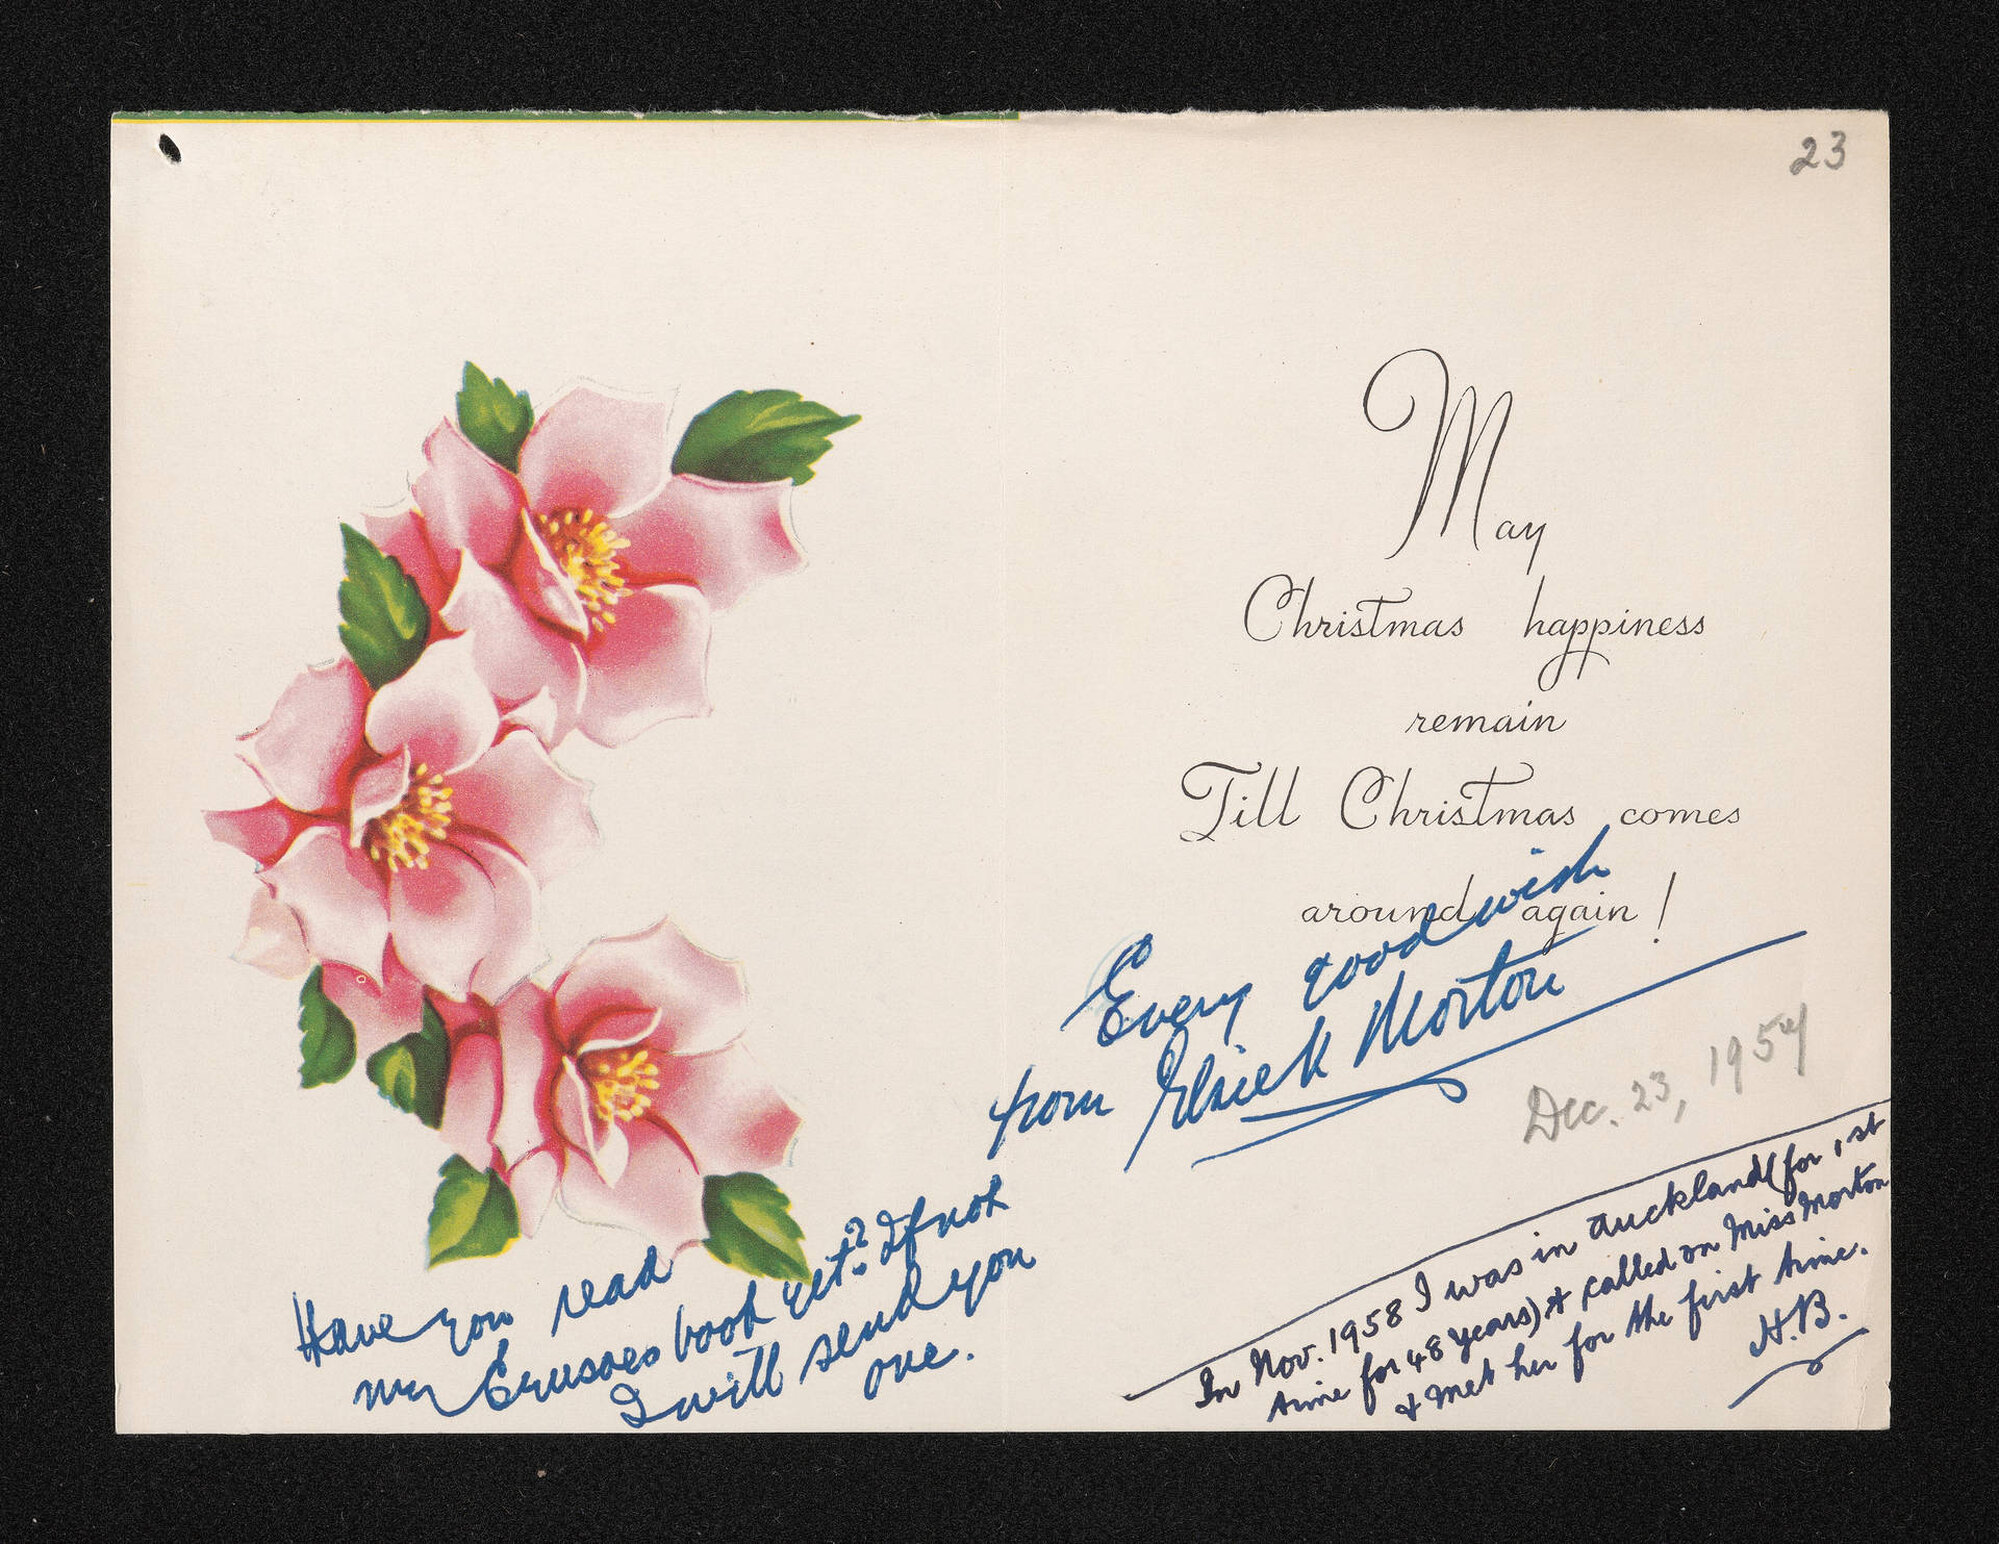 23
May
Christmas happiness
remain
Till Christmas comes
around again!
Every good wish
from Elsie K Morton
Dec. 23, 1957
Have you read
my Crusoes book yet? If not
I will send you
one.
In Nov. 1958 I was in Auckland (for 1st
time for 48 years) & called on Miss Morton
& met her for the first time.
H.B.